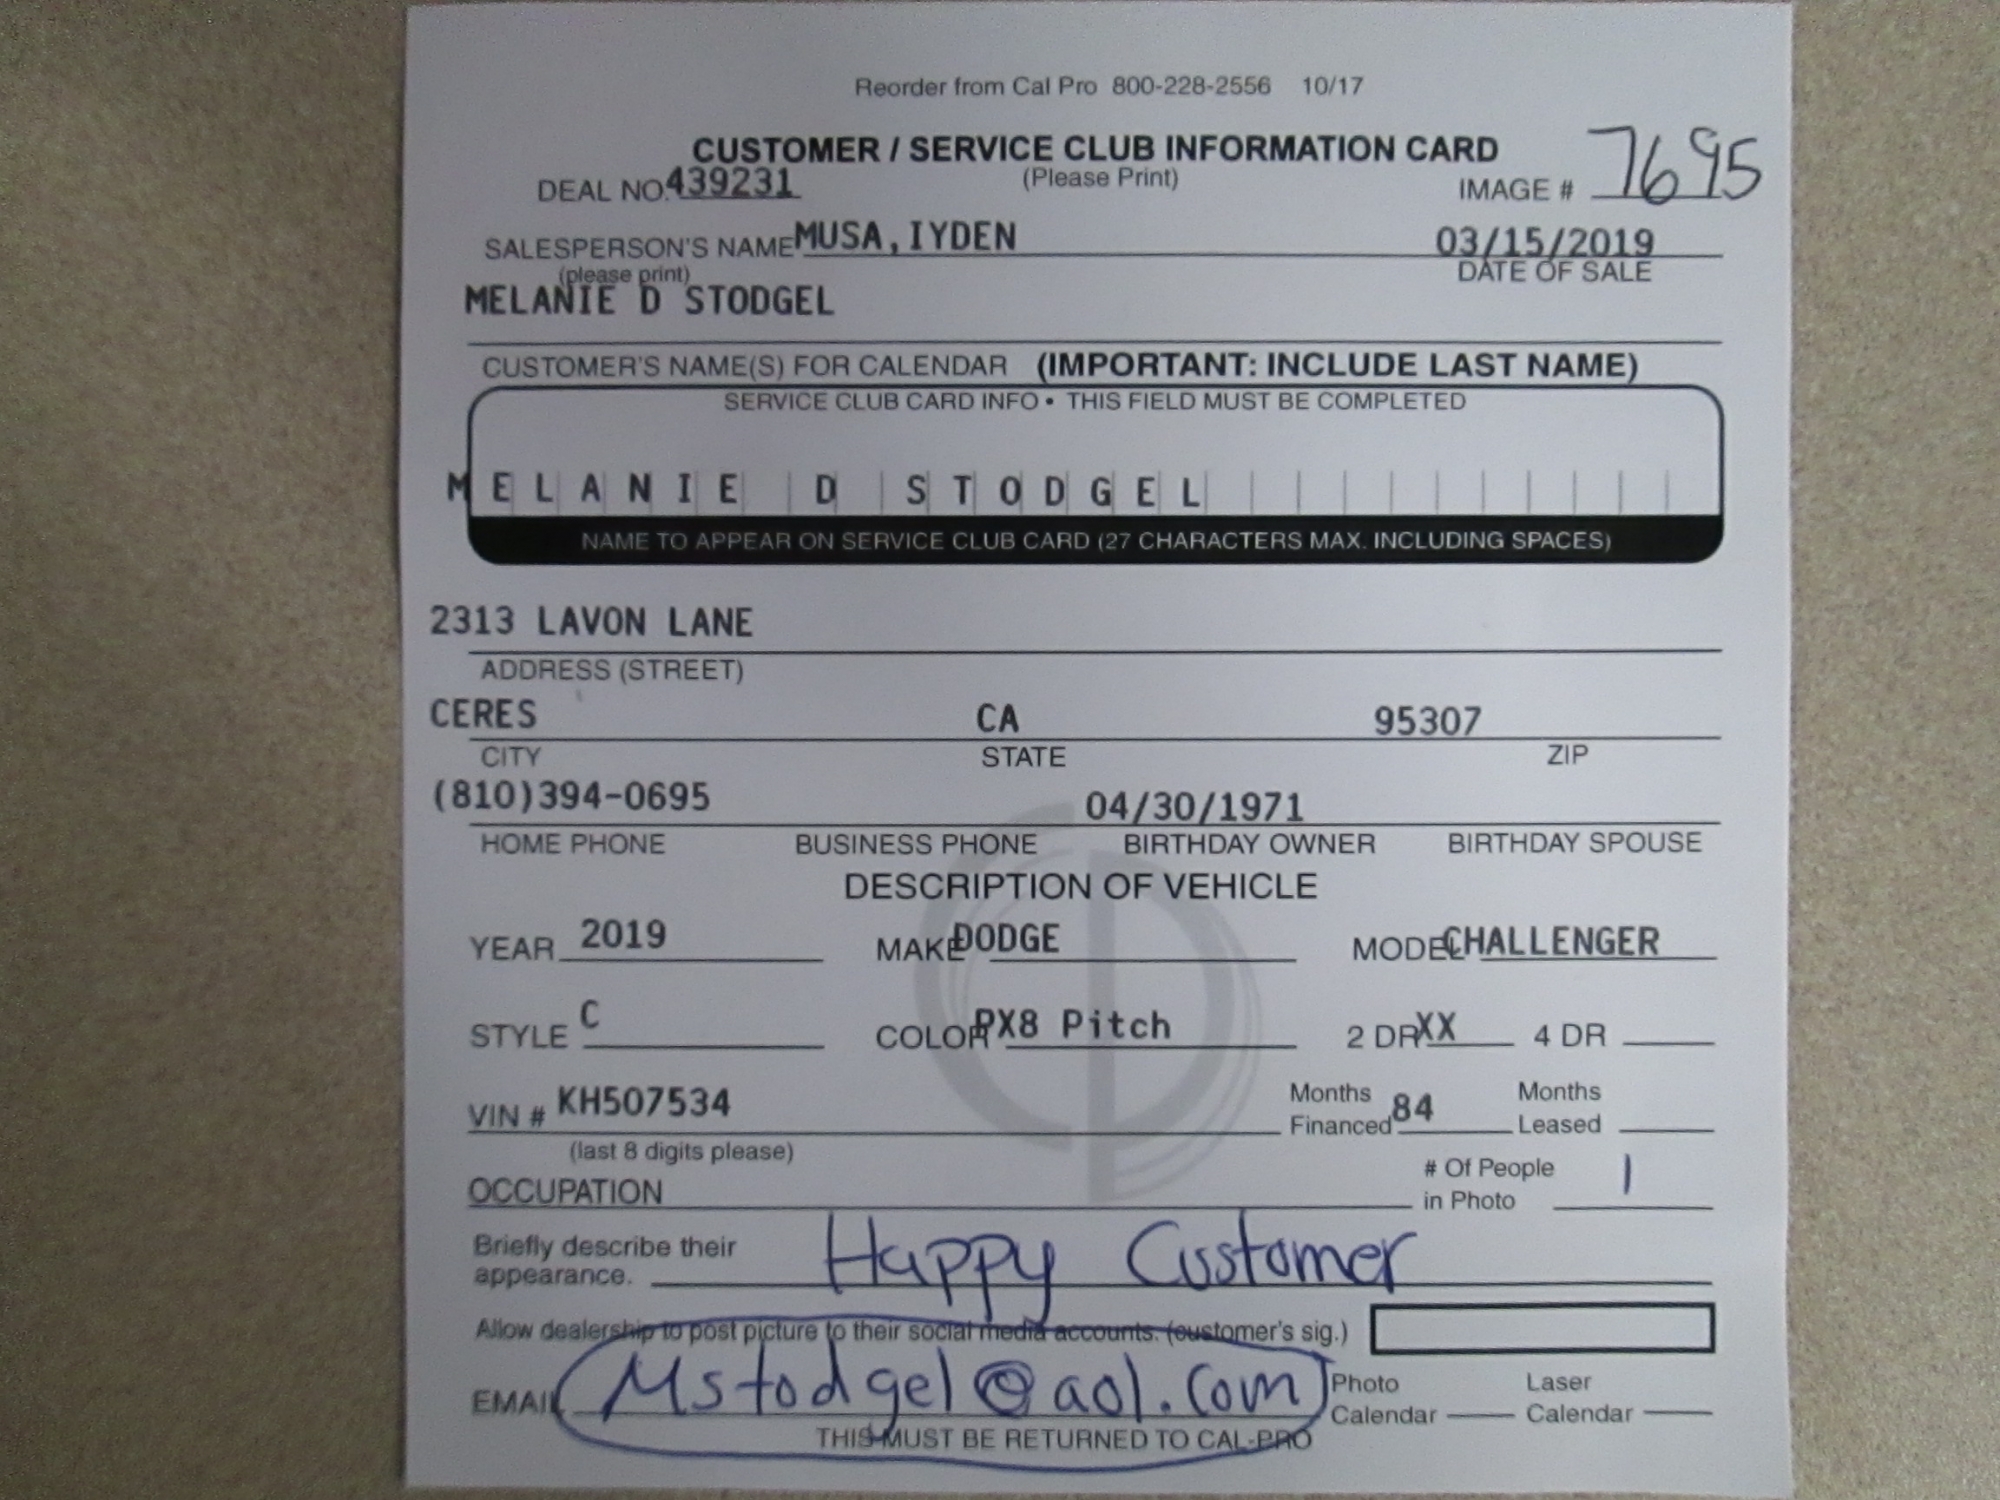 Reorder from Cal Pro 800-228-2556 10/17
CUSTOMER / SERVICE CLUB INFORMATION CARD
DEAL NO. 439231 (Please Print) IMAGE # 7695
SALESPERSON'S NAME MUSA, IYDEN 03/15/2019
(please print) DATE OF SALE
MELANIE D STODGEL
CUSTOMER'S NAME(S) FOR CALENDAR (IMPORTANT: INCLUDE LAST NAME)
SERVICE CLUB CARD INFO • THIS FIELD MUST BE COMPLETED
MELANIE D STODGEL
NAME TO APPEAR ON SERVICE CLUB CARD (27 CHARACTERS MAX. INCLUDING SPACES)
2313 LAVON LANE
ADDRESS (STREET)
CERES CA 95307
CITY STATE ZIP
(810)394-0695 04/30/1971
HOME PHONE BUSINESS PHONE BIRTHDAY OWNER BIRTHDAY SPOUSE
DESCRIPTION OF VEHICLE
YEAR 2019 MAKE DODGE MODEL CHALLENGER
STYLE C COLOR PX8 Pitch 2 DR XX 4 DR
VIN # KH507534 Months Financed 84 Months Leased
(last 8 digits please)
OCCUPATION # Of People in Photo 1
Briefly describe their appearance. Happy Customer
Allow dealership to post picture to their social media accounts. (customer's sig.)
EMAIL Mstodgel@aol.com Photo Calendar Laser Calendar
THIS MUST BE RETURNED TO CAL-PRO